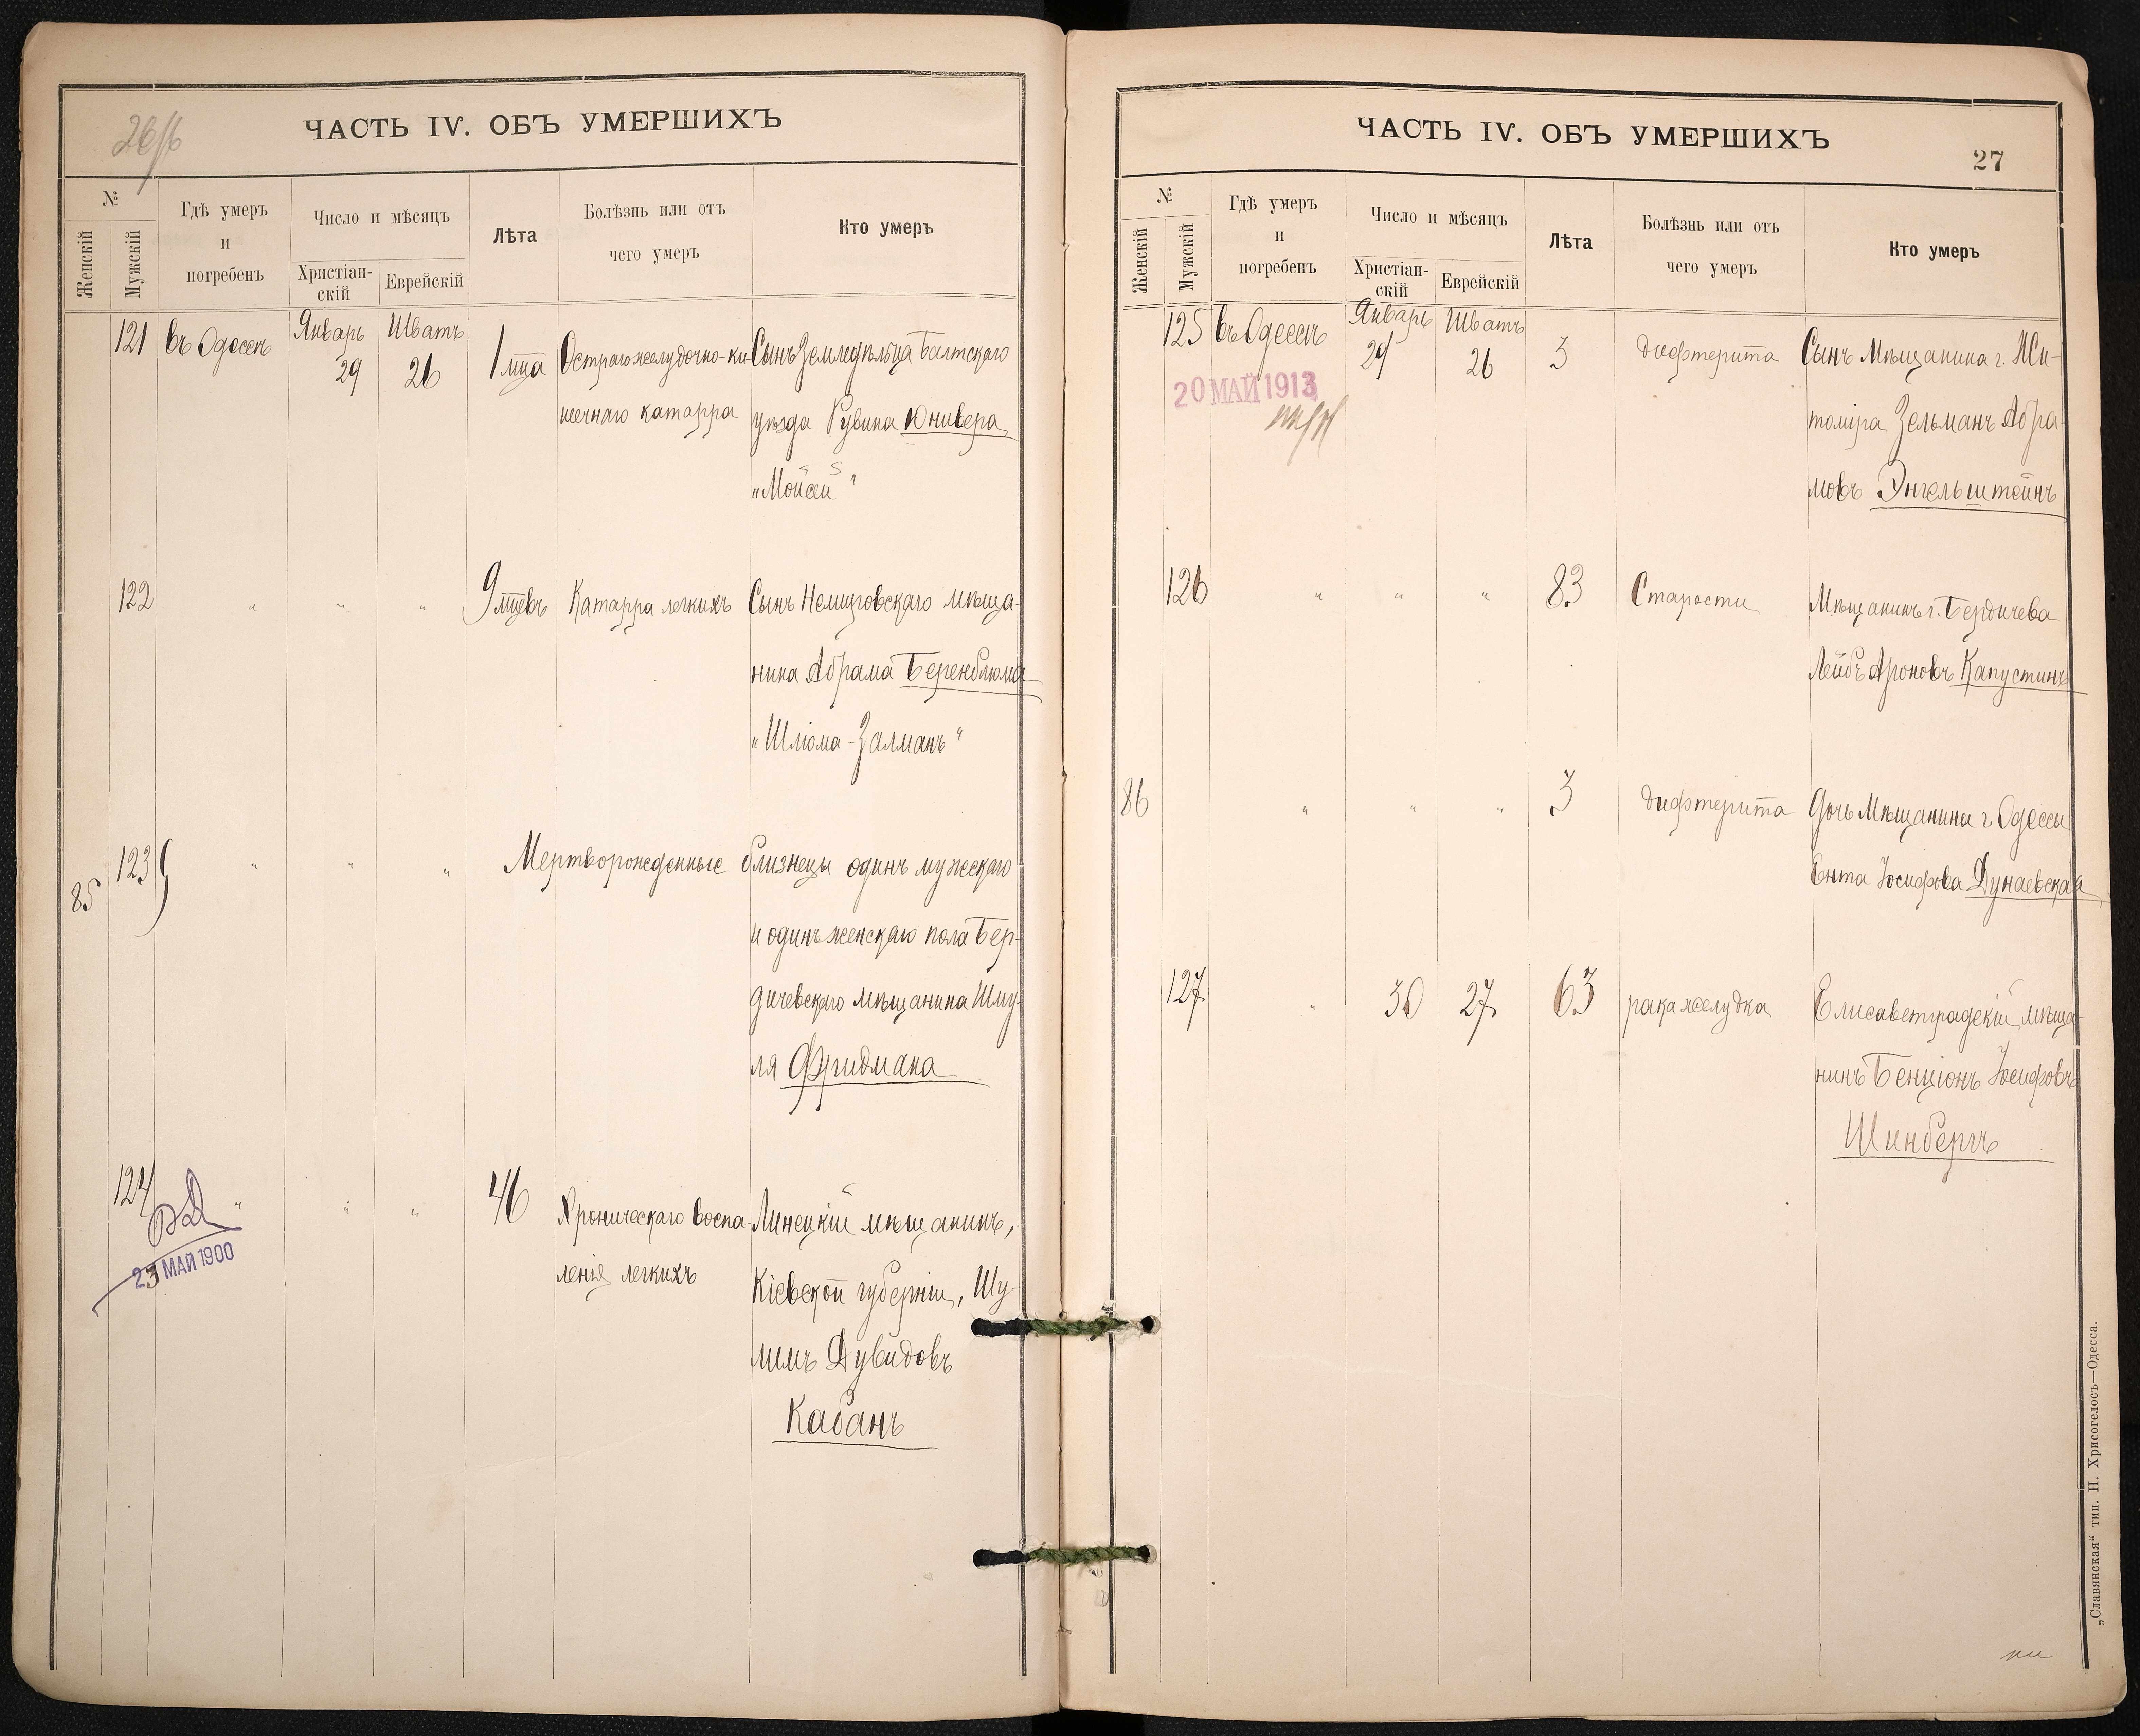 ЧАСТЬ IV. ОБЪ УМЕРШИХЪ
№
Женскій
Мужскій
Гдѣ умеръ
и
погребенъ
Число и мѣсяцъ
Христіан-
скій
Еврейскій
Лѣта
Болѣзнь или отъ
чего умеръ
Кто умеръ
121 въ Одессѣ Январь 29 Шватъ 26 1 мца Остраго желудочно-ки- Сынъ Земледѣльца Балтскаго
шечнаго катарра уѣзда Рувина Юнивера
„Мойсей"
122 " " " 9 мцевъ Катарра легкихъ Сынъ Немировскаго мѣща-
нина Абрама Беренблюма
„Шліома-Залманъ"
85 123 " " " Мертворожденные близнецы одинъ мужескаго
и одинъ женскаго пола Бер-
дичевскаго мѣщанина Шму-
ля Фридмана
124 " " " 46 Хроническаго воспа- Линецкій мѣщанинъ,
ленія легкихъ Кіевской губерніи, Шу-
лимъ Дувидовъ
Кабанъ
23 МАЙ 1900
ЧАСТЬ IV. ОБЪ УМЕРШИХЪ
27
№
Женскій
Мужскій
Гдѣ умеръ
и
погребенъ
Число и мѣсяцъ
Христіан-
скій
Еврейскій
Лѣта
Болѣзнь или отъ
чего умеръ
Кто умеръ
125 въ Одессѣ Январь 29 Шватъ 26 3 дифтерита Сынъ Мѣщанина г. Жи-
20 МАЙ 1913
томіра Зельманъ Абра-
мовъ Энгельштейнъ
126 " " " 83 Старости Мѣщанинъ г. Бердичева
Лейбъ Ароновъ Капустинъ
86 " " " 3 дифтерита Дочь Мѣщанина г. Одессы
Ента Іосифова Дунаевская
127 " 30 27 63 рака желудка Елисаветградскій мѣща-
нинъ Бенціонъ Іосифовъ
Шинбергъ
„Славянская" тип. Н. Хрисогелосъ—Одесса.